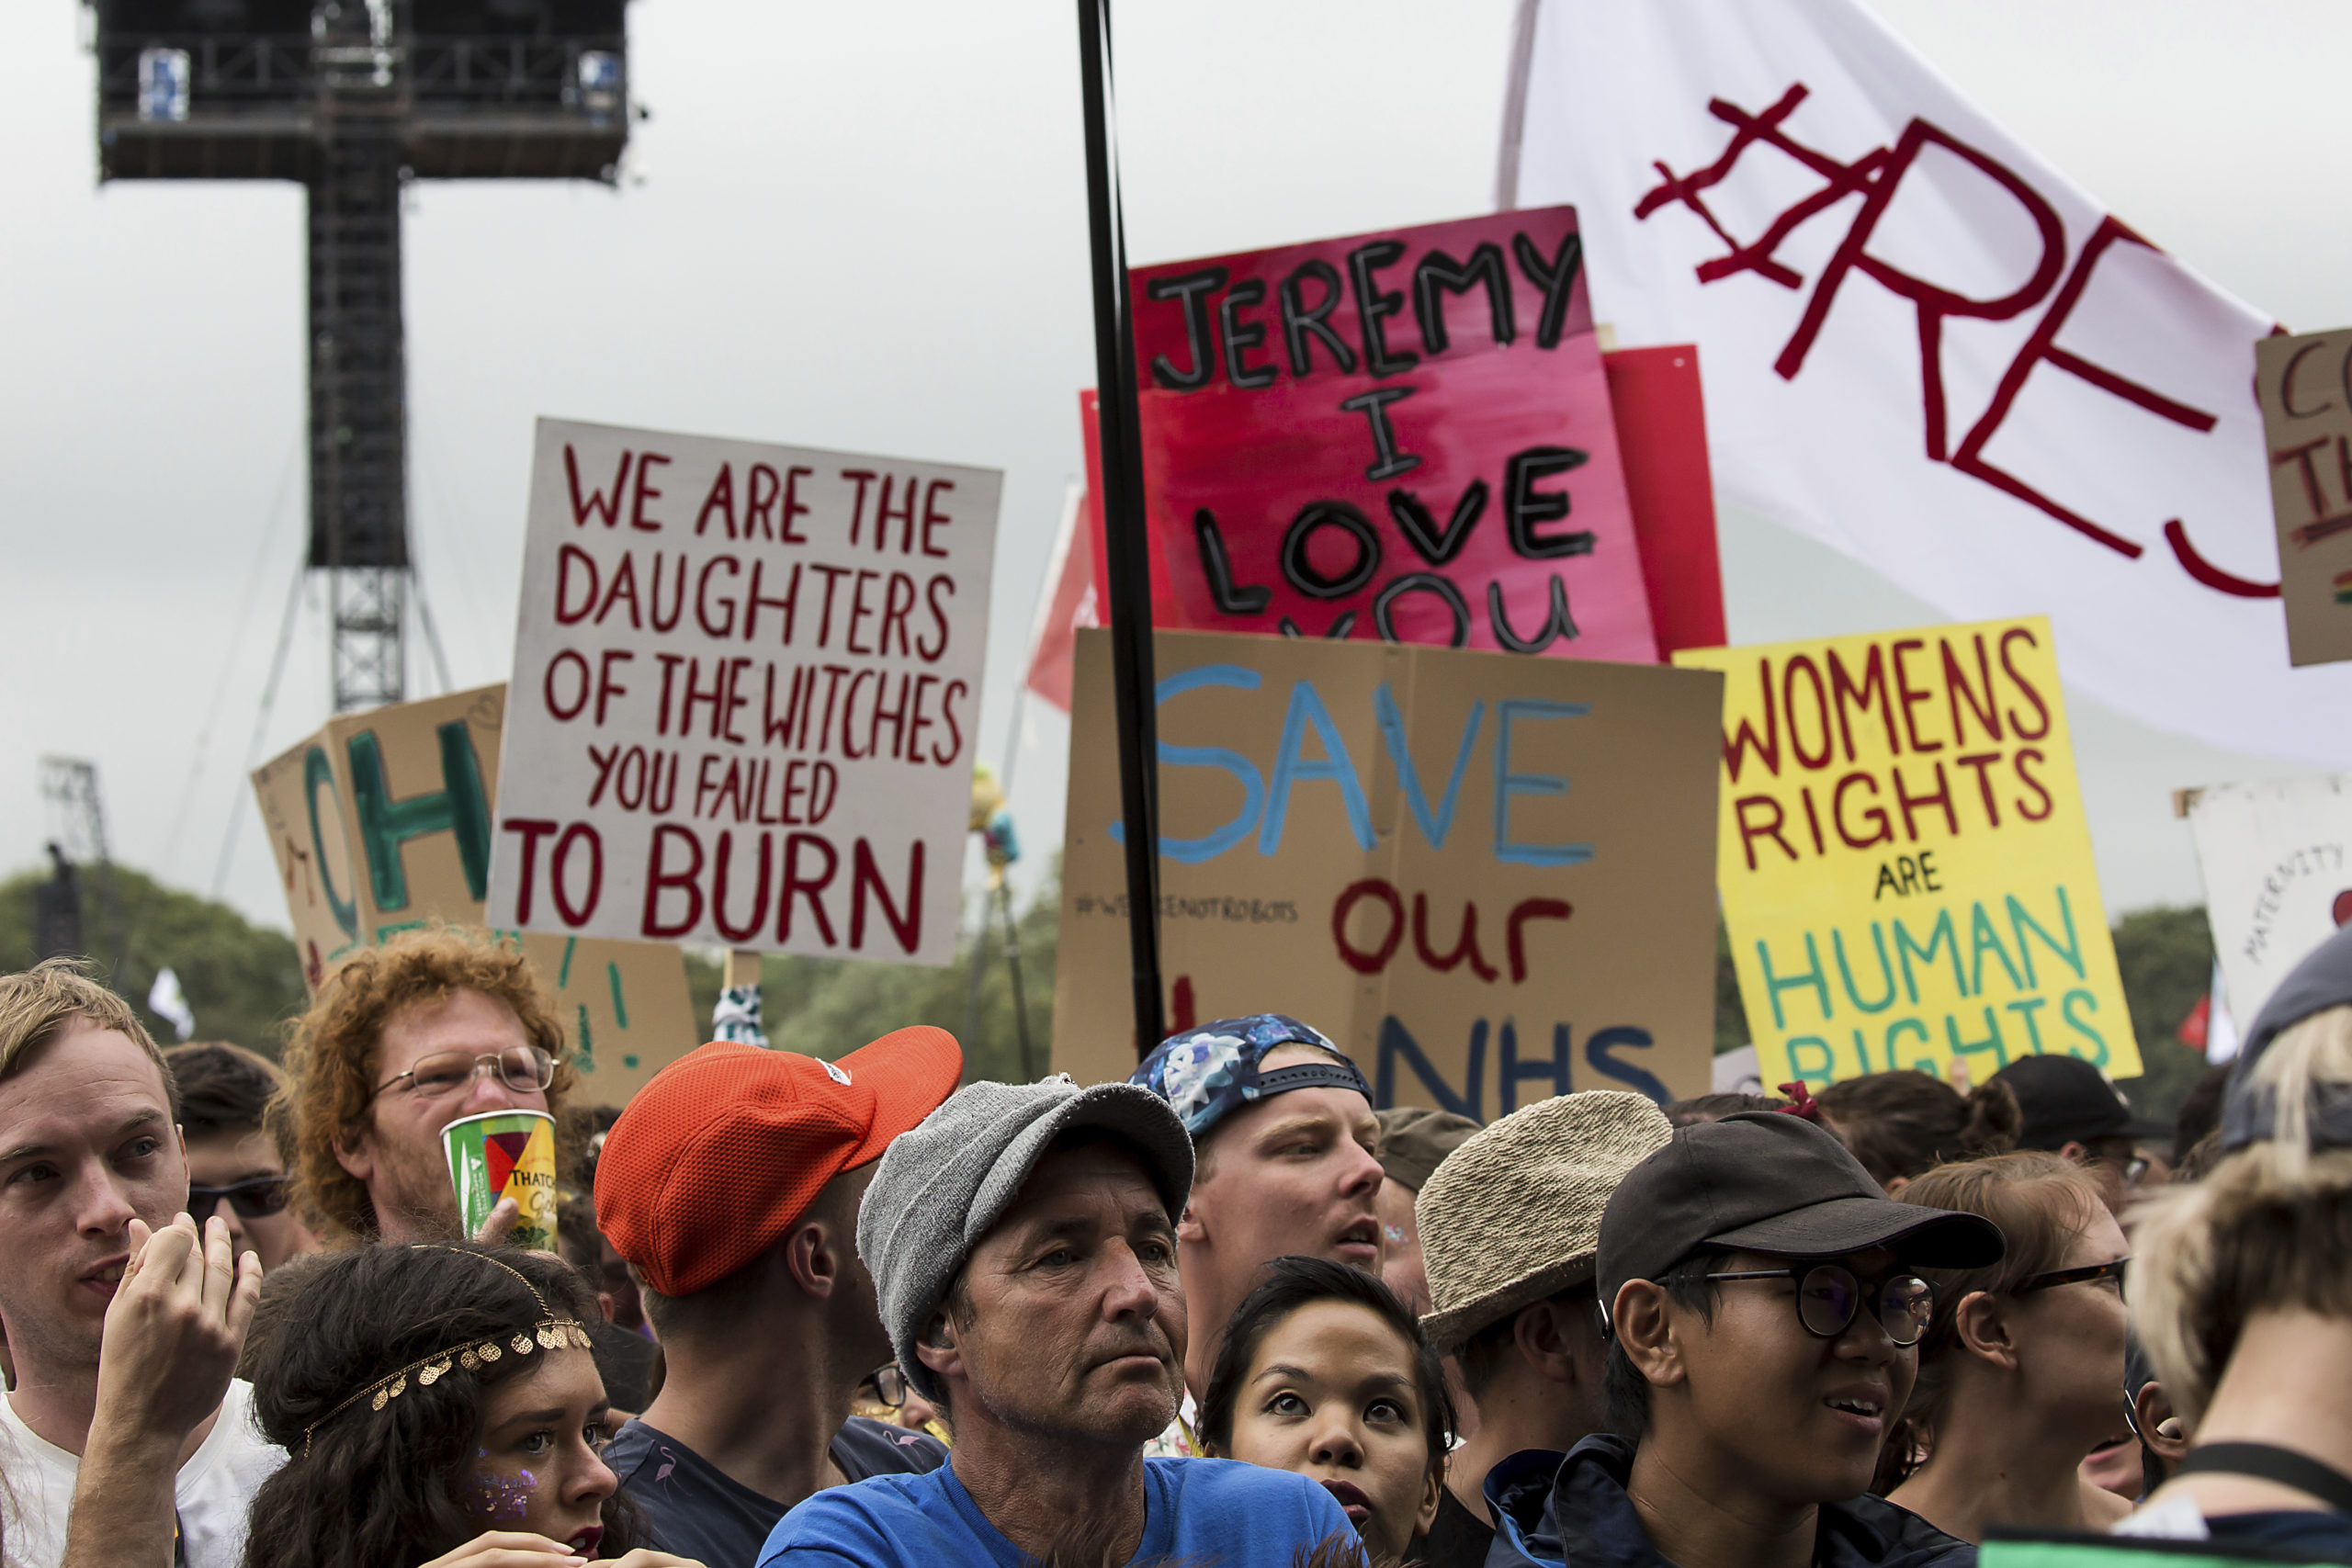 WE ARE THE
DAUGHTERS
OF THE WITCHES
YOU FAILED
TO BURN
OH
JEREMY
I
LOVE
YOU
SAVE
our
NHS
#RES
WOMENS
RIGHTS
ARE
HUMAN
RIGHTS
MATERNITY
THATC